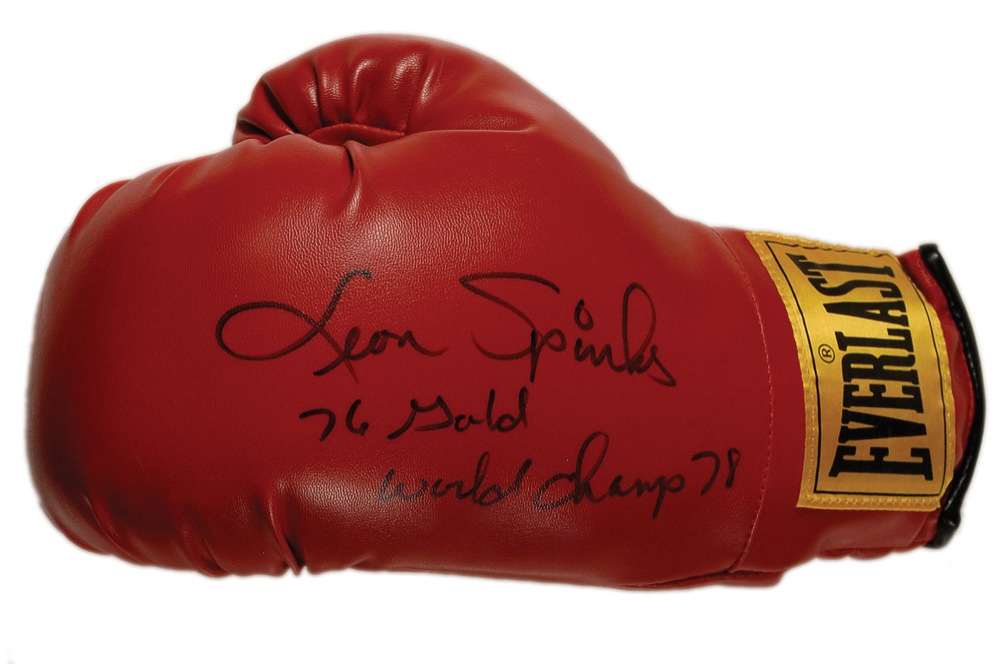 Leon Spinks
76 Gold
World Champ 78
EVERLAST®